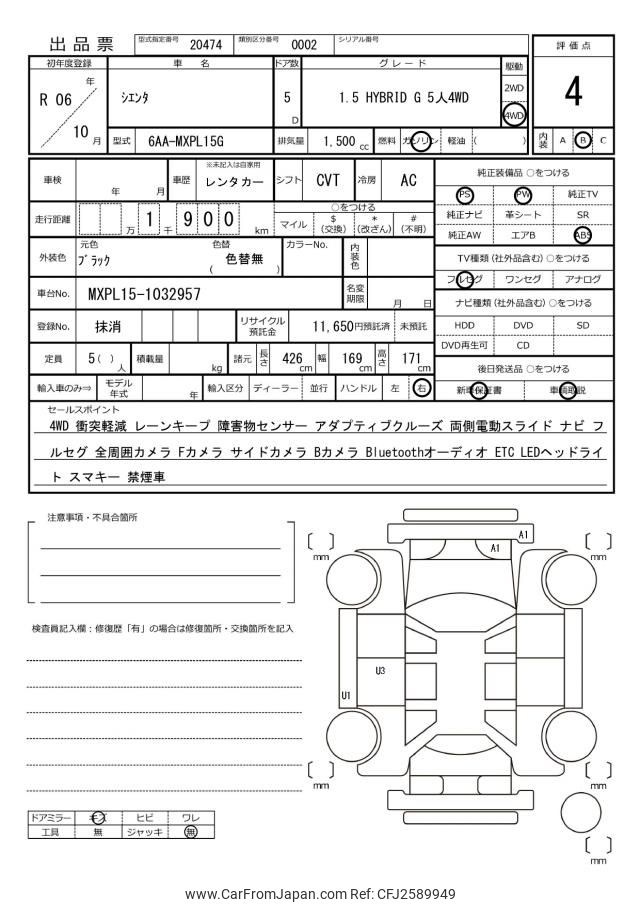 出品票 型式指定番号 20474 類別区分番号 0002 シリアル番号
評価点
4
初年度登録 車名 ドア数 グレード 駆動
R 06 年 10 月
シエンタ
5 D
1.5 HYBRID G 5人4WD
2WD
4WD
型式 6AA-MXPL15G 排気量 1,500 cc 燃料 ガソリン 軽油 ( )
内装 A B C
車検 年 月 車歴 ※未記入は自家用 レンタカー シフト CVT 冷房 AC
走行距離 万 1 千 9 0 0 km
○をつける
マイル $(交換) *(改ざん) #(不明)
外装色 元色 ブラック 色替 ( 色替無 ) カラーNo. 内装色
車台No. MXPL15-1032957 名変期限 月 日
登録No. 抹消 リサイクル預託金 11,650円預託済 未預託
定員 5 ( ) 人 積載量 kg 諸元 長さ 426 cm 幅 169 cm 高さ 171 cm
輸入車のみ⇒ モデル年式 年 輸入区分 ディーラー 並行 ハンドル 左 右
純正装備品 ○をつける
PS PW 純正TV
純正ナビ 革シート SR
純正AW エアB ABS
TV種類 (社外品含む) ○をつける
フルセグ ワンセグ アナログ
ナビ種類 (社外品含む) ○をつける
HDD DVD SD
DVD再生可 CD
後日発送品 ○をつける
新車保証書 車輌取説
セールスポイント
4WD 衝突軽減 レーンキープ 障害物センサー アダプティブクルーズ 両側電動スライド ナビ フ
ルセグ 全周囲カメラ Fカメラ サイドカメラ Bカメラ Bluetoothオーディオ ETC LEDヘッドライ
ト スマキー 禁煙車
注意事項・不具合箇所
検査員記入欄：修復歴「有」の場合は修復箇所・交換箇所を記入
A1
A1
U3
U1
mm
mm
mm
mm
mm
ドアミラー キズ ヒビ ワレ
工具 無 ジャッキ 無
www.CarFromJapan.com Ref: CFJ2589949